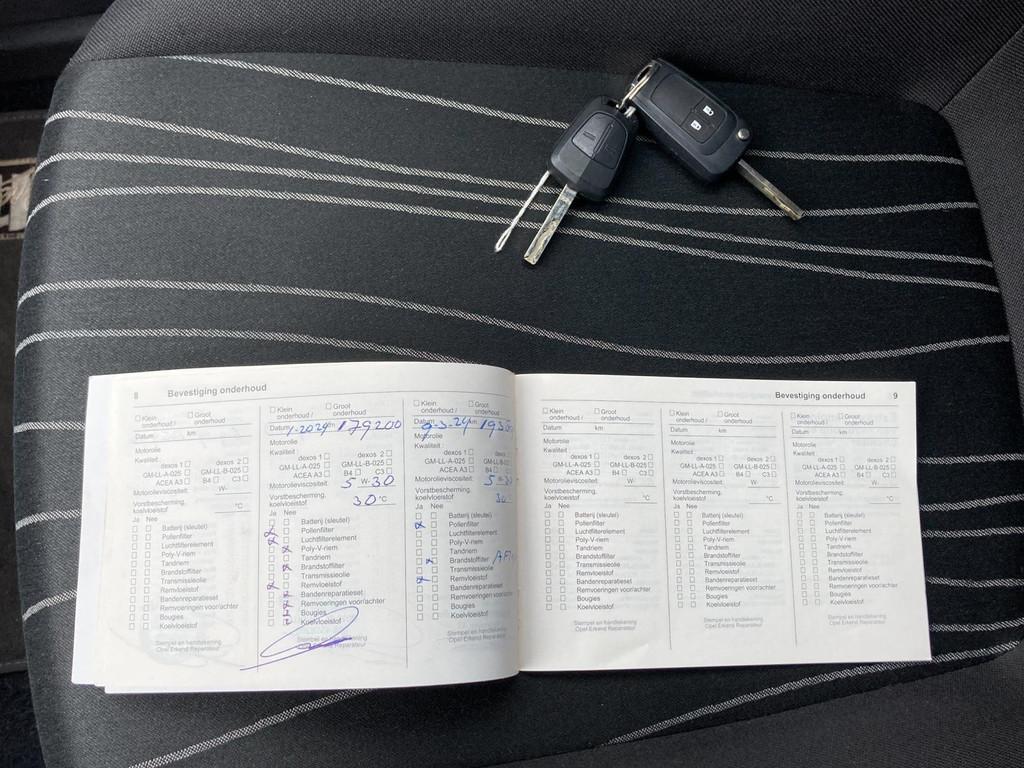 8 Bevestiging onderhoud
☐ Klein onderhoud / ☐ Groot onderhoud
Datum km
Motorolie
Kwaliteit :
dexos 1 ☐ dexos 2 ☐
GM-LL-A-025 ☐ GM-LL-B-025 ☐
ACEA A3 ☐ B4 ☐ C3 ☐
Motorolieviscositeit:
W-
Vorstbescherming, koelvloeistof
°C
Ja Nee
☐ ☐ Batterij (sleutel)
☐ ☐ Pollenfilter
☐ ☐ Luchtfilterelement
☐ ☐ Poly-V-riem
☐ ☐ Tandriem
☐ ☐ Brandstoffilter
☐ ☐ Transmissieolie
☐ ☐ Remvloeistof
☐ ☐ Bandenreparatieset
☐ ☐ Remvoeringen voor/achter
☐ ☐ Bougies
☐ ☐ Koelvloeistof
Stempel en handtekening
Opel Erkend Reparateur
☐ Klein onderhoud / ☐ Groot onderhoud
Datum 1-2024 km 179200
Motorolie
Kwaliteit :
dexos 1 ☐ dexos 2 ☐
GM-LL-A-025 ☐ GM-LL-B-025 ☐
ACEA A3 ☐ B4 ☐ C3 ☐
Motorolieviscositeit: 5 W-30
Vorstbescherming, koelvloeistof
30 °C
Ja Nee
Batterij (sleutel)
Pollenfilter
Luchtfilterelement
Poly-V-riem
Tandriem
Brandstoffilter
Transmissieolie
Remvloeistof
Bandenreparatieset
Remvoeringen voor/achter
Bougies
Koelvloeistof
Stempel en handtekening
Reparateur
☐ Klein onderhoud / ☐ Groot onderhoud
Datum km
Motorolie
Kwaliteit :
dexos 1 ☐
GM-LL-A-025 ☐ GM-LL-B-02
ACEA A3 ☐ B4 ☐
Motorolieviscositeit: 5 W-30
Vorstbescherming, koelvloeistof
30
Ja Nee
Batterij (sleutel)
Pollenfilter
Luchtfilterelement
Poly-V-riem
Tandriem
Brandstoffilter
Transmissieolie
Remvloeistof
Bandenreparatieset
Remvoeringen voor/achter
Bougies
Koelvloeistof
Stempel en handtekening
Opel Erkend Reparateur
Bevestiging onderhoud 9
☐ Klein onderhoud / ☐ Groot onderhoud
Datum km
Motorolie
Kwaliteit :
dexos 1 ☐ dexos 2 ☐
GM-LL-A-025 ☐ GM-LL-B-025 ☐
ACEA A3 ☐ B4 ☐ C3 ☐
Motorolieviscositeit:
W-
Vorstbescherming, koelvloeistof
°C
Ja Nee
☐ ☐ Batterij (sleutel)
☐ ☐ Pollenfilter
☐ ☐ Luchtfilterelement
☐ ☐ Poly-V-riem
☐ ☐ Tandriem
☐ ☐ Brandstoffilter
☐ ☐ Transmissieolie
☐ ☐ Remvloeistof
☐ ☐ Bandenreparatieset
☐ ☐ Remvoeringen voor/achter
☐ ☐ Bougies
☐ ☐ Koelvloeistof
Stempel en handtekening
Opel Erkend Reparateur
☐ Klein onderhoud / ☐ Groot onderhoud
Datum km
Motorolie
Kwaliteit :
dexos 1 ☐ dexos 2 ☐
GM-LL-A-025 ☐ GM-LL-B-025 ☐
ACEA A3 ☐ B4 ☐ C3 ☐
Motorolieviscositeit:
W-
Vorstbescherming, koelvloeistof
°C
Ja Nee
☐ ☐ Batterij (sleutel)
☐ ☐ Pollenfilter
☐ ☐ Luchtfilterelement
☐ ☐ Poly-V-riem
☐ ☐ Tandriem
☐ ☐ Brandstoffilter
☐ ☐ Transmissieolie
☐ ☐ Remvloeistof
☐ ☐ Bandenreparatieset
☐ ☐ Remvoeringen voor/achter
☐ ☐ Bougies
☐ ☐ Koelvloeistof
Stempel en handtekening
Opel Erkend Reparateur
☐ Klein onderhoud / ☐ Groot onderhoud
Datum km
Motorolie
Kwaliteit :
dexos 1 ☐ dexos 2 ☐
GM-LL-A-025 ☐ GM-LL-B-025 ☐
ACEA A3 ☐ B4 ☐ C3 ☐
Motorolieviscositeit:
W-
Vorstbescherming, koelvloeistof
°C
Ja Nee
☐ ☐ Batterij (sleutel)
☐ ☐ Pollenfilter
☐ ☐ Luchtfilterelement
☐ ☐ Poly-V-riem
☐ ☐ Tandriem
☐ ☐ Brandstoffilter
☐ ☐ Transmissieolie
☐ ☐ Remvloeistof
☐ ☐ Bandenreparatieset
☐ ☐ Remvoeringen voor/achter
☐ ☐ Bougies
☐ ☐ Koelvloeistof
Stempel en handtekening
Opel Erkend Reparateur